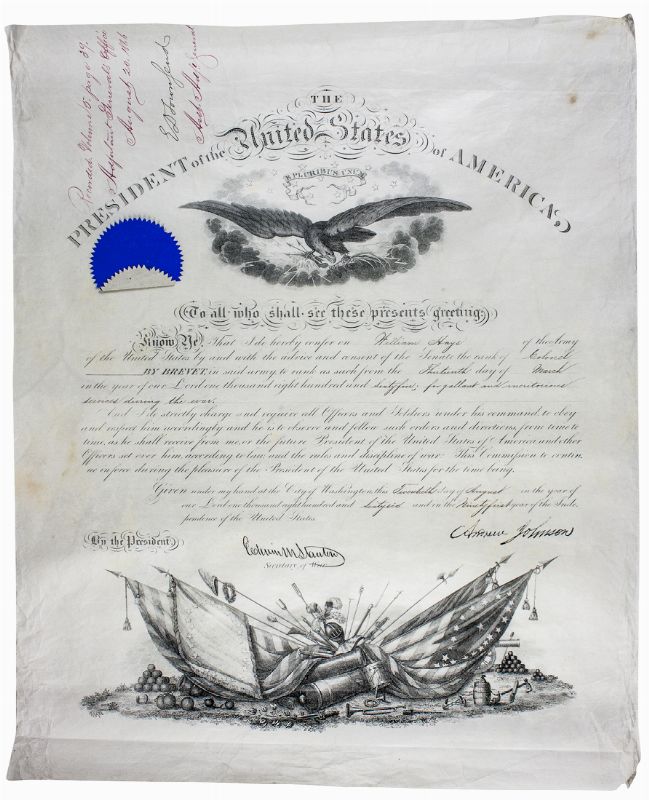 Recorded Volume 5, page 39,
Adjutant General's Office
August 20, 1866
E D Townsend
Asst Adjt General
THE
PRESIDENT of the United States of AMERICA,
E PLURIBUS UNUM
To all who shall see these presents greeting:
Know Ye, That I do hereby confer on William Hays of the Army
of the United States by and with the advice and consent of the Senate the rank of Colonel
BY BREVET, in said army, to rank as such from the Thirteenth day of March
in the year of our Lord one thousand eight hundred and sixty five, for gallant and meritorious
services during the war.
And I do strictly charge and require all Officers and Soldiers under his command to obey
and respect him accordingly: and he is to observe and follow such orders and directions, from time to
time, as he shall receive from me, or the future President of the United States of America, and other
Officers set over him, according to law, and the rules and discipline of war. This Commission to contin-
ue in force during the pleasure of the President of the United States for the time being.
Given under my hand at the City of Washington, this Twentieth day of August in the year of
our Lord one thousand eight hundred and sixty six and in the Ninety first year of the Inde-
pendence of the United States.
By the President
Andrew Johnson
Edwin M Stanton
Secretary of War